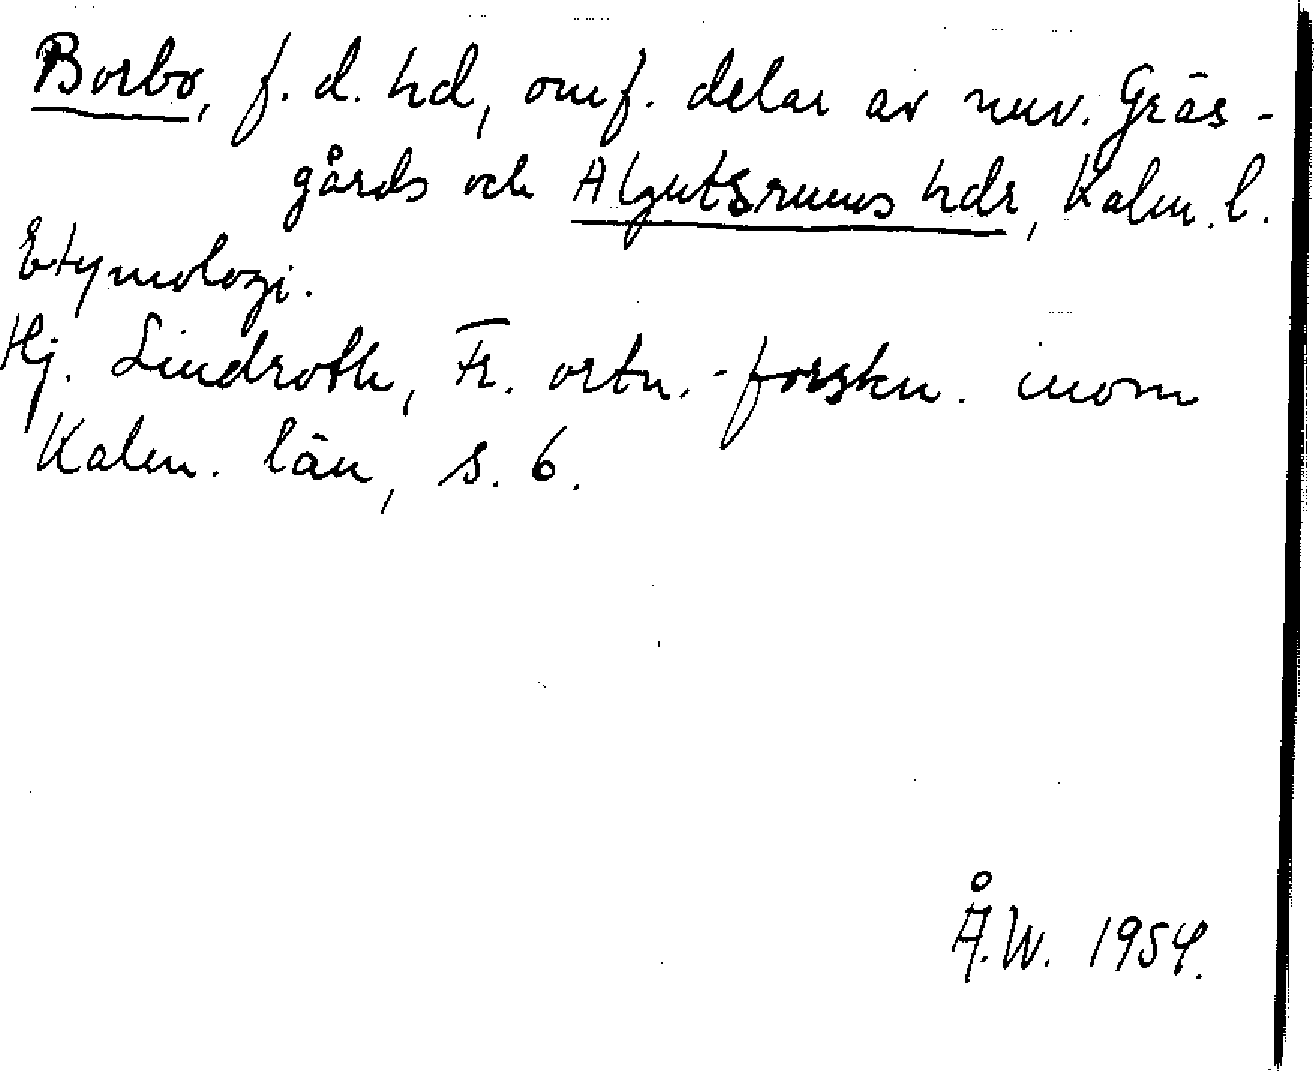 Borbo, f. d. hd, omf. delar av nuv. Gräs-
gårds och Algutsrums hdr, Kalm. l.
Etymologi.
Hj. Lindroth, Fr. ortn.-forskn. inom
Kalm. län, s. 6.
Å.W. 1954.